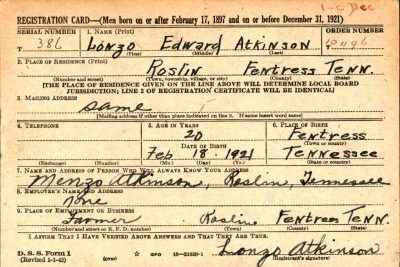 1-C Dec
REGISTRATION CARD—(Men born on or after February 17, 1897 and on or before December 31, 1921)
SERIAL NUMBER 1. NAME (Print) ORDER NUMBER
T 386 Lonzo Edward Atkinson
(First) (Middle) (Last)
2. PLACE OF RESIDENCE (Print)
Roslin Fentress Tenn.
(Number and street) (Town, township, village, or city) (County) (State)
[THE PLACE OF RESIDENCE GIVEN ON THE LINE ABOVE WILL DETERMINE LOCAL BOARD
JURISDICTION; LINE 2 OF REGISTRATION CERTIFICATE WILL BE IDENTICAL]
3. MAILING ADDRESS
Same
[Mailing address if other than place indicated on line 2. If same insert word same]
4. TELEPHONE 5. AGE IN YEARS 6. PLACE OF BIRTH
20 Fentress
DATE OF BIRTH (Town or county)
Feb 18 1921 Tennessee
(Exchange) (Number) (Mo.) (Day) (Yr.) (State or country)
7. NAME AND ADDRESS OF PERSON WHO WILL ALWAYS KNOW YOUR ADDRESS
Menzo Atkinson, Roslin, Tennessee
8. EMPLOYER'S NAME AND ADDRESS
None
9. PLACE OF EMPLOYMENT OR BUSINESS
Farmer Roslin Fentress Tenn.
(Number and street or R. F. D. number) (Town) (County) (State)
I AFFIRM THAT I HAVE VERIFIED ABOVE ANSWERS AND THAT THEY ARE TRUE.
D. S. S. Form 1
(Revised 1-1-42) (over) GPO 16-21630-1 Lonzo Atkinson
(Registrant's signature)